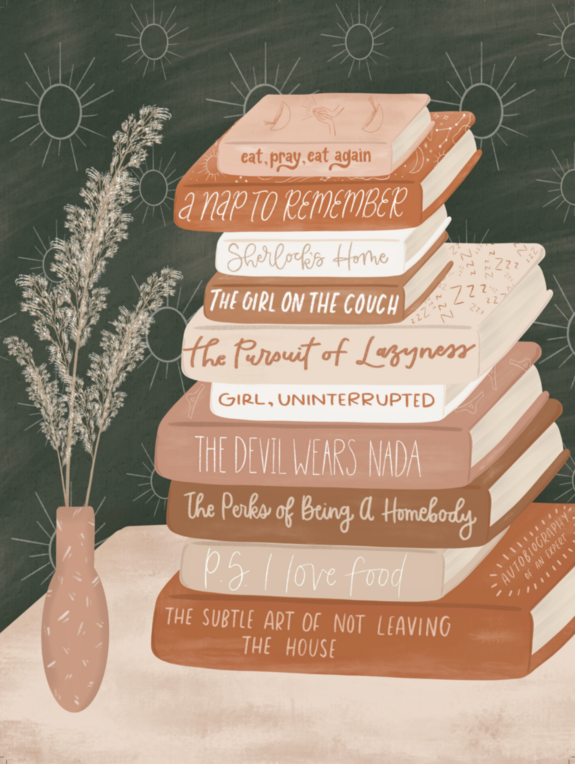 eat, pray, eat again
a NAP TO REMEMBER
Sherlock's Home
THE GIRL ON THE COUCH
Z Z Z
the Pursuit of Lazyness
GIRL, UNINTERRUPTED
THE DEVIL WEARS NADA
The Perks of Being A Homebody
P.S I love food
AUTOBIOGRAPHY
OF AN EXPERT
THE SUBTLE ART OF NOT LEAVING
THE HOUSE